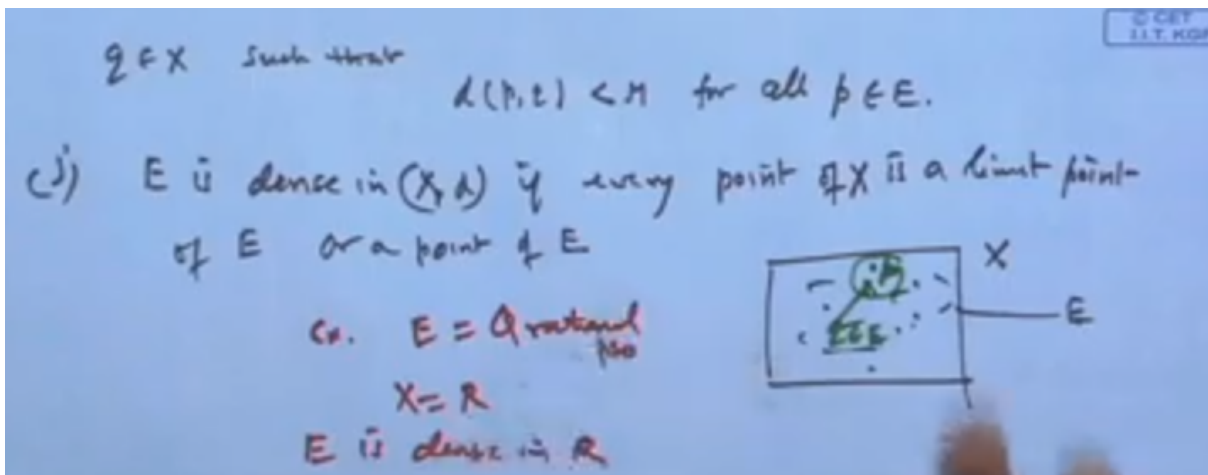 © CET
I.I.T. KGP
q ∈ X such that
d(p,q) < M for all p ∈ E.
(j) E is dense in (X, d) if every point of X is a limit point
of E or a point of E
X
E
Ex. E = Q rational
X = R
E is dense in R